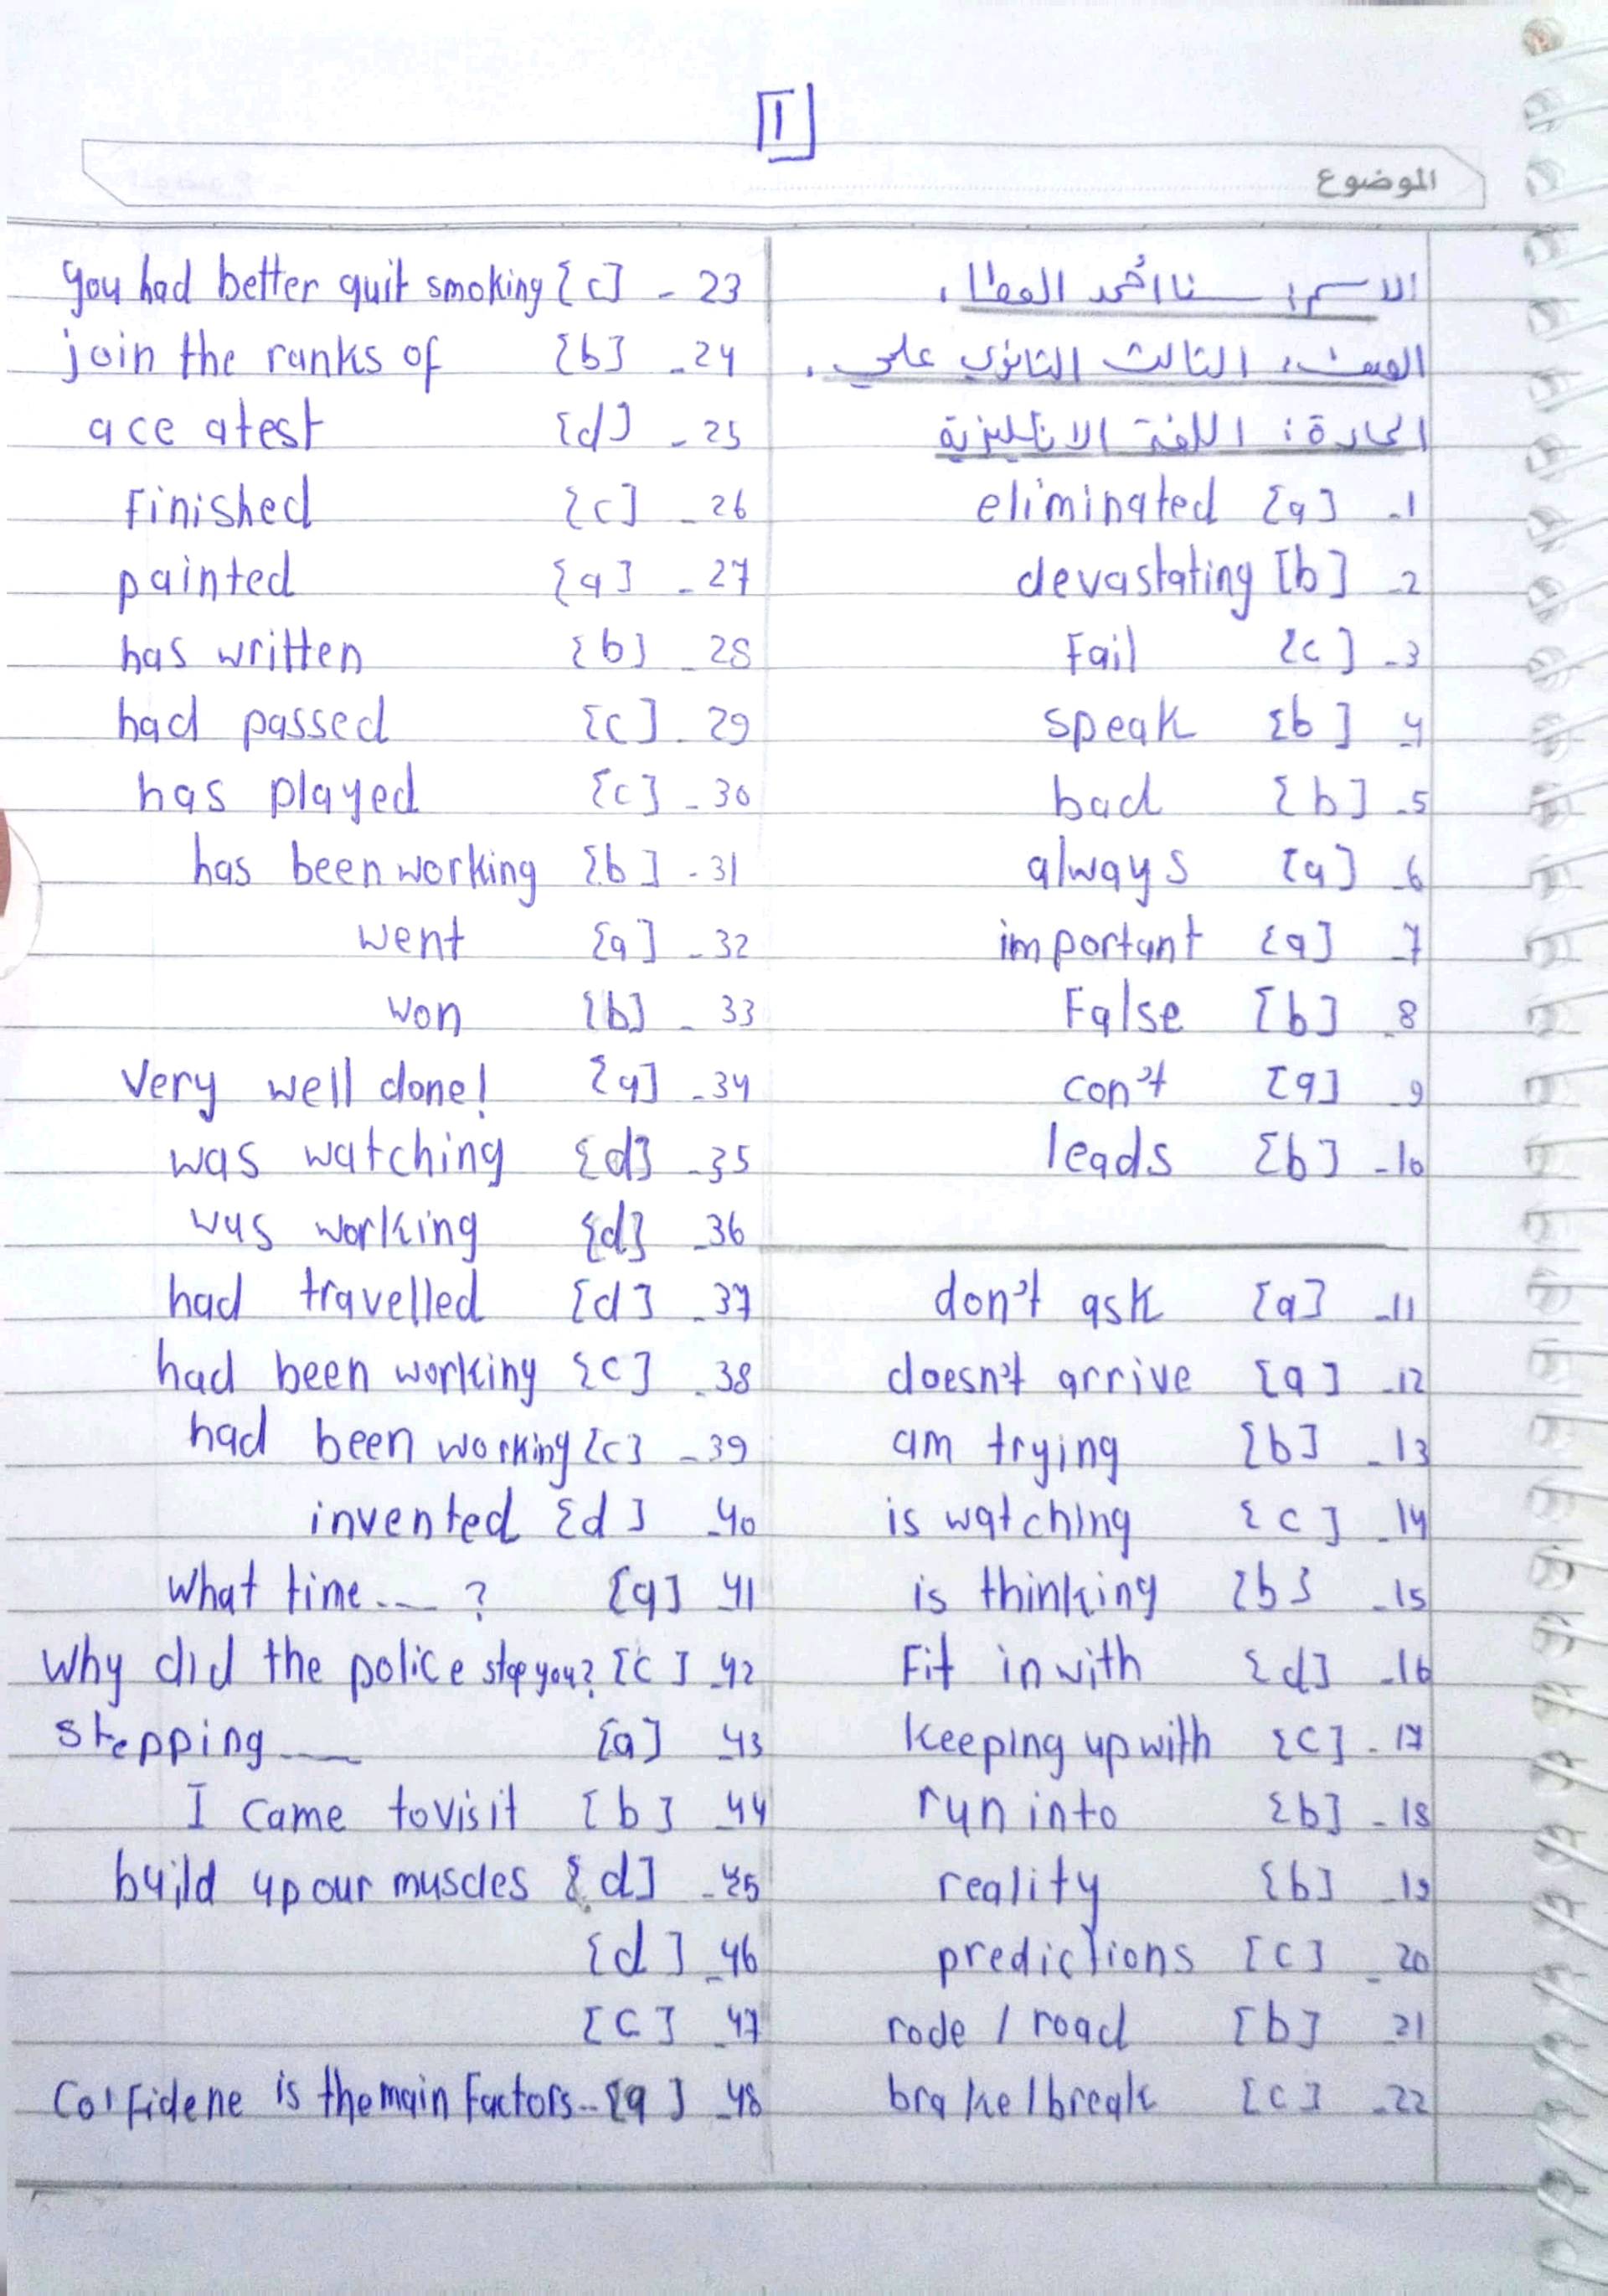 1
الموضوع
الاسم: سنا أحمد العطا.
الصف: الثالث الثانوي علمي.
المادة: اللغة الانكليزية
1- [a] eliminated
2- [b] devastating
3- [c] Fail
4- [b] speak
5- [b] bad
6- [a] always
7- [a] important
8- [b] False
9- [a] con't
10- [b] leads
11- [a] don't ask
12- [a] doesn't arrive
13- [b] am trying
14- [c] is watching
15- [b] is thinking
16- [d] Fit in with
17- [c] keeping up with
18- [b] run into
19- [b] reality
20- [c] predictions
21- [b] rode / road
22- [c] brake / break
23- [c] you had better quit smoking
24- [b] join the ranks of
25- [d] ace atest
26- [c] Finished
27- [a] painted
28- [b] has written
29- [c] had passed
30- [c] has played
31- [b] has been working
32- [a] went
33- [b] won
34- [a] Very well done!
35- [d] was watching
36- [d] was working
37- [d] had travelled
38- [c] had been working
39- [c] had been working
40- [d] invented
41- [a] What time --- ?
42- [c] Why did the police stop you?
43- [a] stepping ---
44- [b] I came to visit
45- [d] build up our muscles
46- [d]
47- [c]
48- [a] is the main Factors --